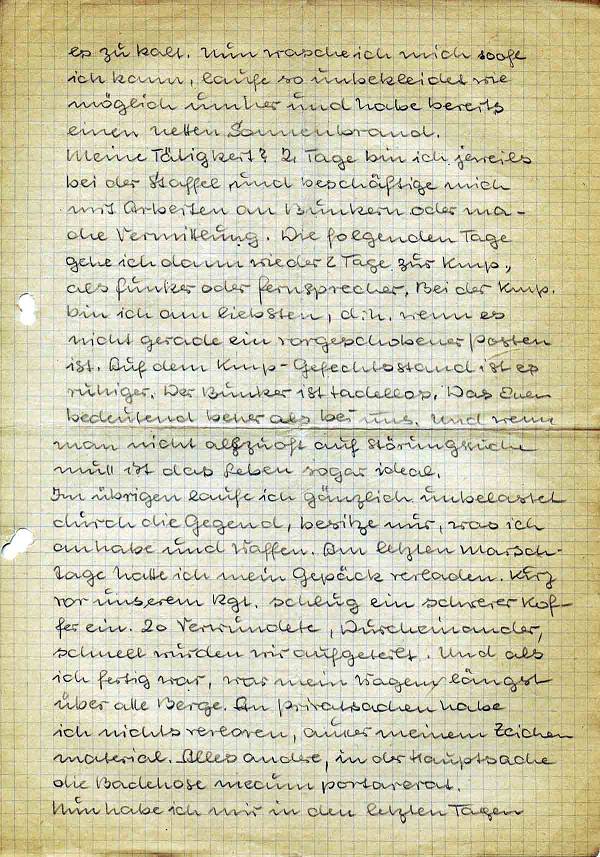 es zu kalt. Nun wasche ich mich sooft
ich kann, laufe so unbekleidet wie
möglich umher und habe bereits
einen netten Sonnenbrand.
Meine Tätigkeit? 2 Tage bin ich jeweils
bei der Staffel und beschäftige mich
mit Arbeiten an Bunkern oder ma-
che Vermittlung. Die folgenden Tage
gehe ich dann wieder 2 Tage zur Kmp.,
als Funker oder Fernsprecher. Bei der Kmp.
bin ich am liebsten, d.h. wenn es
nicht gerade ein vorgeschobener Posten
ist. Auf dem Kmp-Gefechtsstand ist es
ruhiger. Der Bunker ist tadellos. Das Essen
bedeutend besser als bei uns. Und wenn
man nicht allzuoft auf Störungssuche
muß ist das Leben sogar ideal.
Im übrigen laufe ich gänzlich unbelastet
durch die Gegend, besitze nur, was ich
anhabe und Waffen. Am letzten Marsch-
tage hatte ich mein Gepäck verladen. Kurz
vor unserem Rgt. schlug ein schwerer Kof-
fer ein. 20 Verwundete, Durcheinander,
schnell wurden wir aufgeteilt. Und als
ich fertig war, war mein Wagen längst
über alle Berge. An Privatsachen habe
ich nichts verloren, außer meinem Zeichen
material. Alles andere, in der Hauptsache
die Badehose mecum portaverat.
Nun habe ich mir in den letzten Tagen